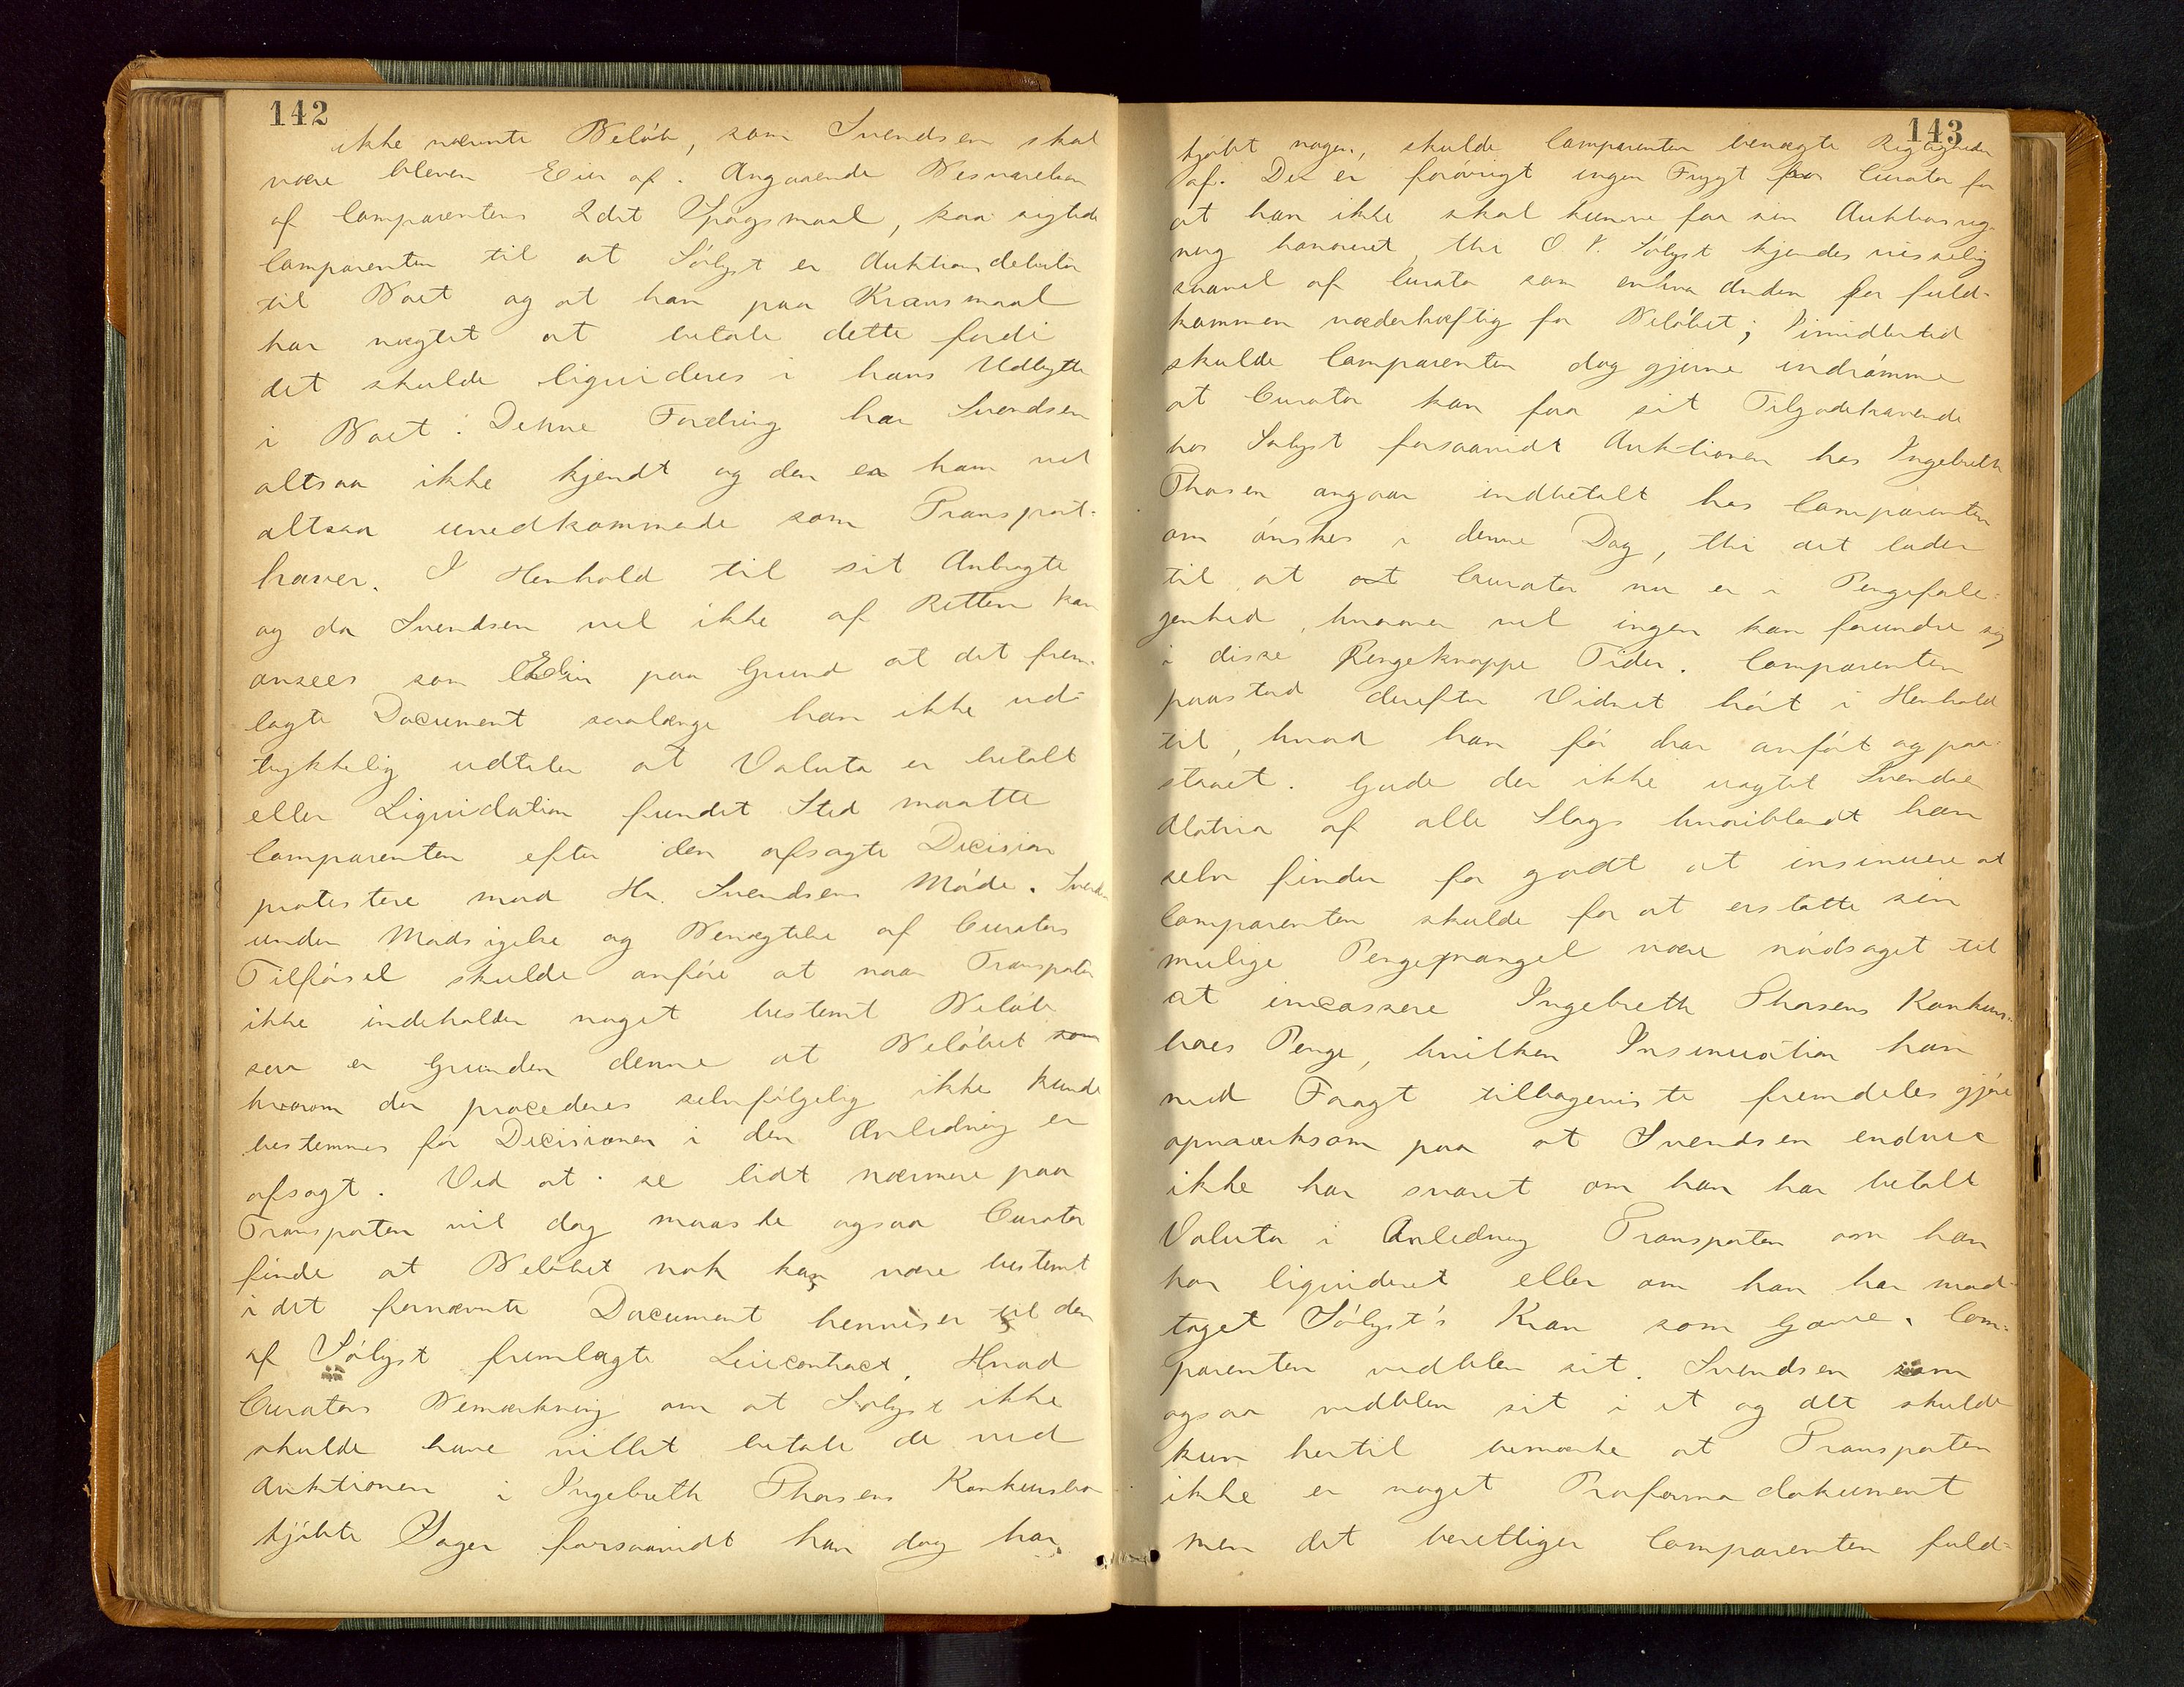 142
ikke nævnte Beløb, som Svendsen skal
være bleven Eier af. Angaaende Besvarelsen
af Comparentens 2det Spøgsmaal, saa sigtede
Comparenten til at Sølyst er Auktionsdebitor
til Boet og at han paa Kravsmaal
har nægtet at betale dette fordi
det skulde liquideres i hans Udbytte
i Boet. Denne Fordring har Svendsen
altsaa ikke kjendt og den er ham vel
altsaa uvedkommede som Transport-
haver. I Henhold til sit Anbragte
og da Svendsen vel ikke af Retten kan
ansees som Eier paa Grund at det frem-
lagte Document saalænge han ikke ud-
trykkelig udtaler at Valuta er betalt
eller Liquidation fundet Sted maatte
Comparenten efter den afsagte Decision
protestere mod Hr. Svendsens Møde. Svendsen
under Modsigelse og Benægtelse af Curators
Tilførsel skulde anføre at naar Transporten
ikke indeholder noget bestemt Beløb
saa er Grunden denne at Beløbet som
hvorom der procederes selvfølgelig ikke kunde
bestemmes før Decisionen i den Anledning er
afsagt. Ved at se lidt nærmere paa
Transporten vil dog maaske ogsaa Curator
finde at Beløbet nok kan være bestemt
i det fornævnte Document henviser til den
af Sølyst fremlagte Leiecontract. Hvad
Curators Bemærkning om at Sølyst ikke
skulde have villet betale de ved
Auktionen i Ingebreth Thosens Konkursbo
kjøbte Sager forsaavidt han dog har
143
kjøbt nogen, skulde Comparenten benægte Rigtigheden
af. Der er forøvrigt ingen Frygt for Curator for
at han ikke skal kunne faa sin Auktionsreg-
ning honoreret, thi O. V. Sølyst kjendes visselig
saavel af Curator som enhver Anden for fuld-
kommen vederhæftig for Beløbet; imidlertid
skulde Comparenten dog gjerne indrømme
at Curator kan faa sit Tilgodehavende
hos Sølyst forsaavidt Auktionen hos Ingebreth
Thosen angaar indbetalt hos Comparenten
om ønskes i denne Dag, thi det lader
til at at Curator nu er i Pengeforle-
genhed, hvorover vel ingen kan forundre sig
i disse Pengeknappe Tider. Comparenten
paastod derefter Vidnet hørt i Henhold
til, hvad han før har anført og paa-
staaet. Gude der ikke nægtet Svendsen
Motiver af alle Slags hvoriblandt han
selv finder for godt at insinuere at
Comparenten skulde for at erstatte sin
mulige Pengemangel være nødsaget til
at incassere Ingebreth Thosens Konkurs-
boes Penge, hvilken Insinuation han
med Foragt tilbageviste fremdeles gjøre
opmærksom paa at Svendsen endnu
ikke har svaret om han har betalt
Valuta i Anledning Transporten om han
har liquideret eller om han har mod-
taget Sølyst's Krav som Gave. Com-
parenten vedblev sit. Svendsen som
ogsaa vedblev sit i et og alt skulde
kun hertil bemærke at Transporten
ikke er noget Proforma dokument
men det berettiger Comparenten fuld-